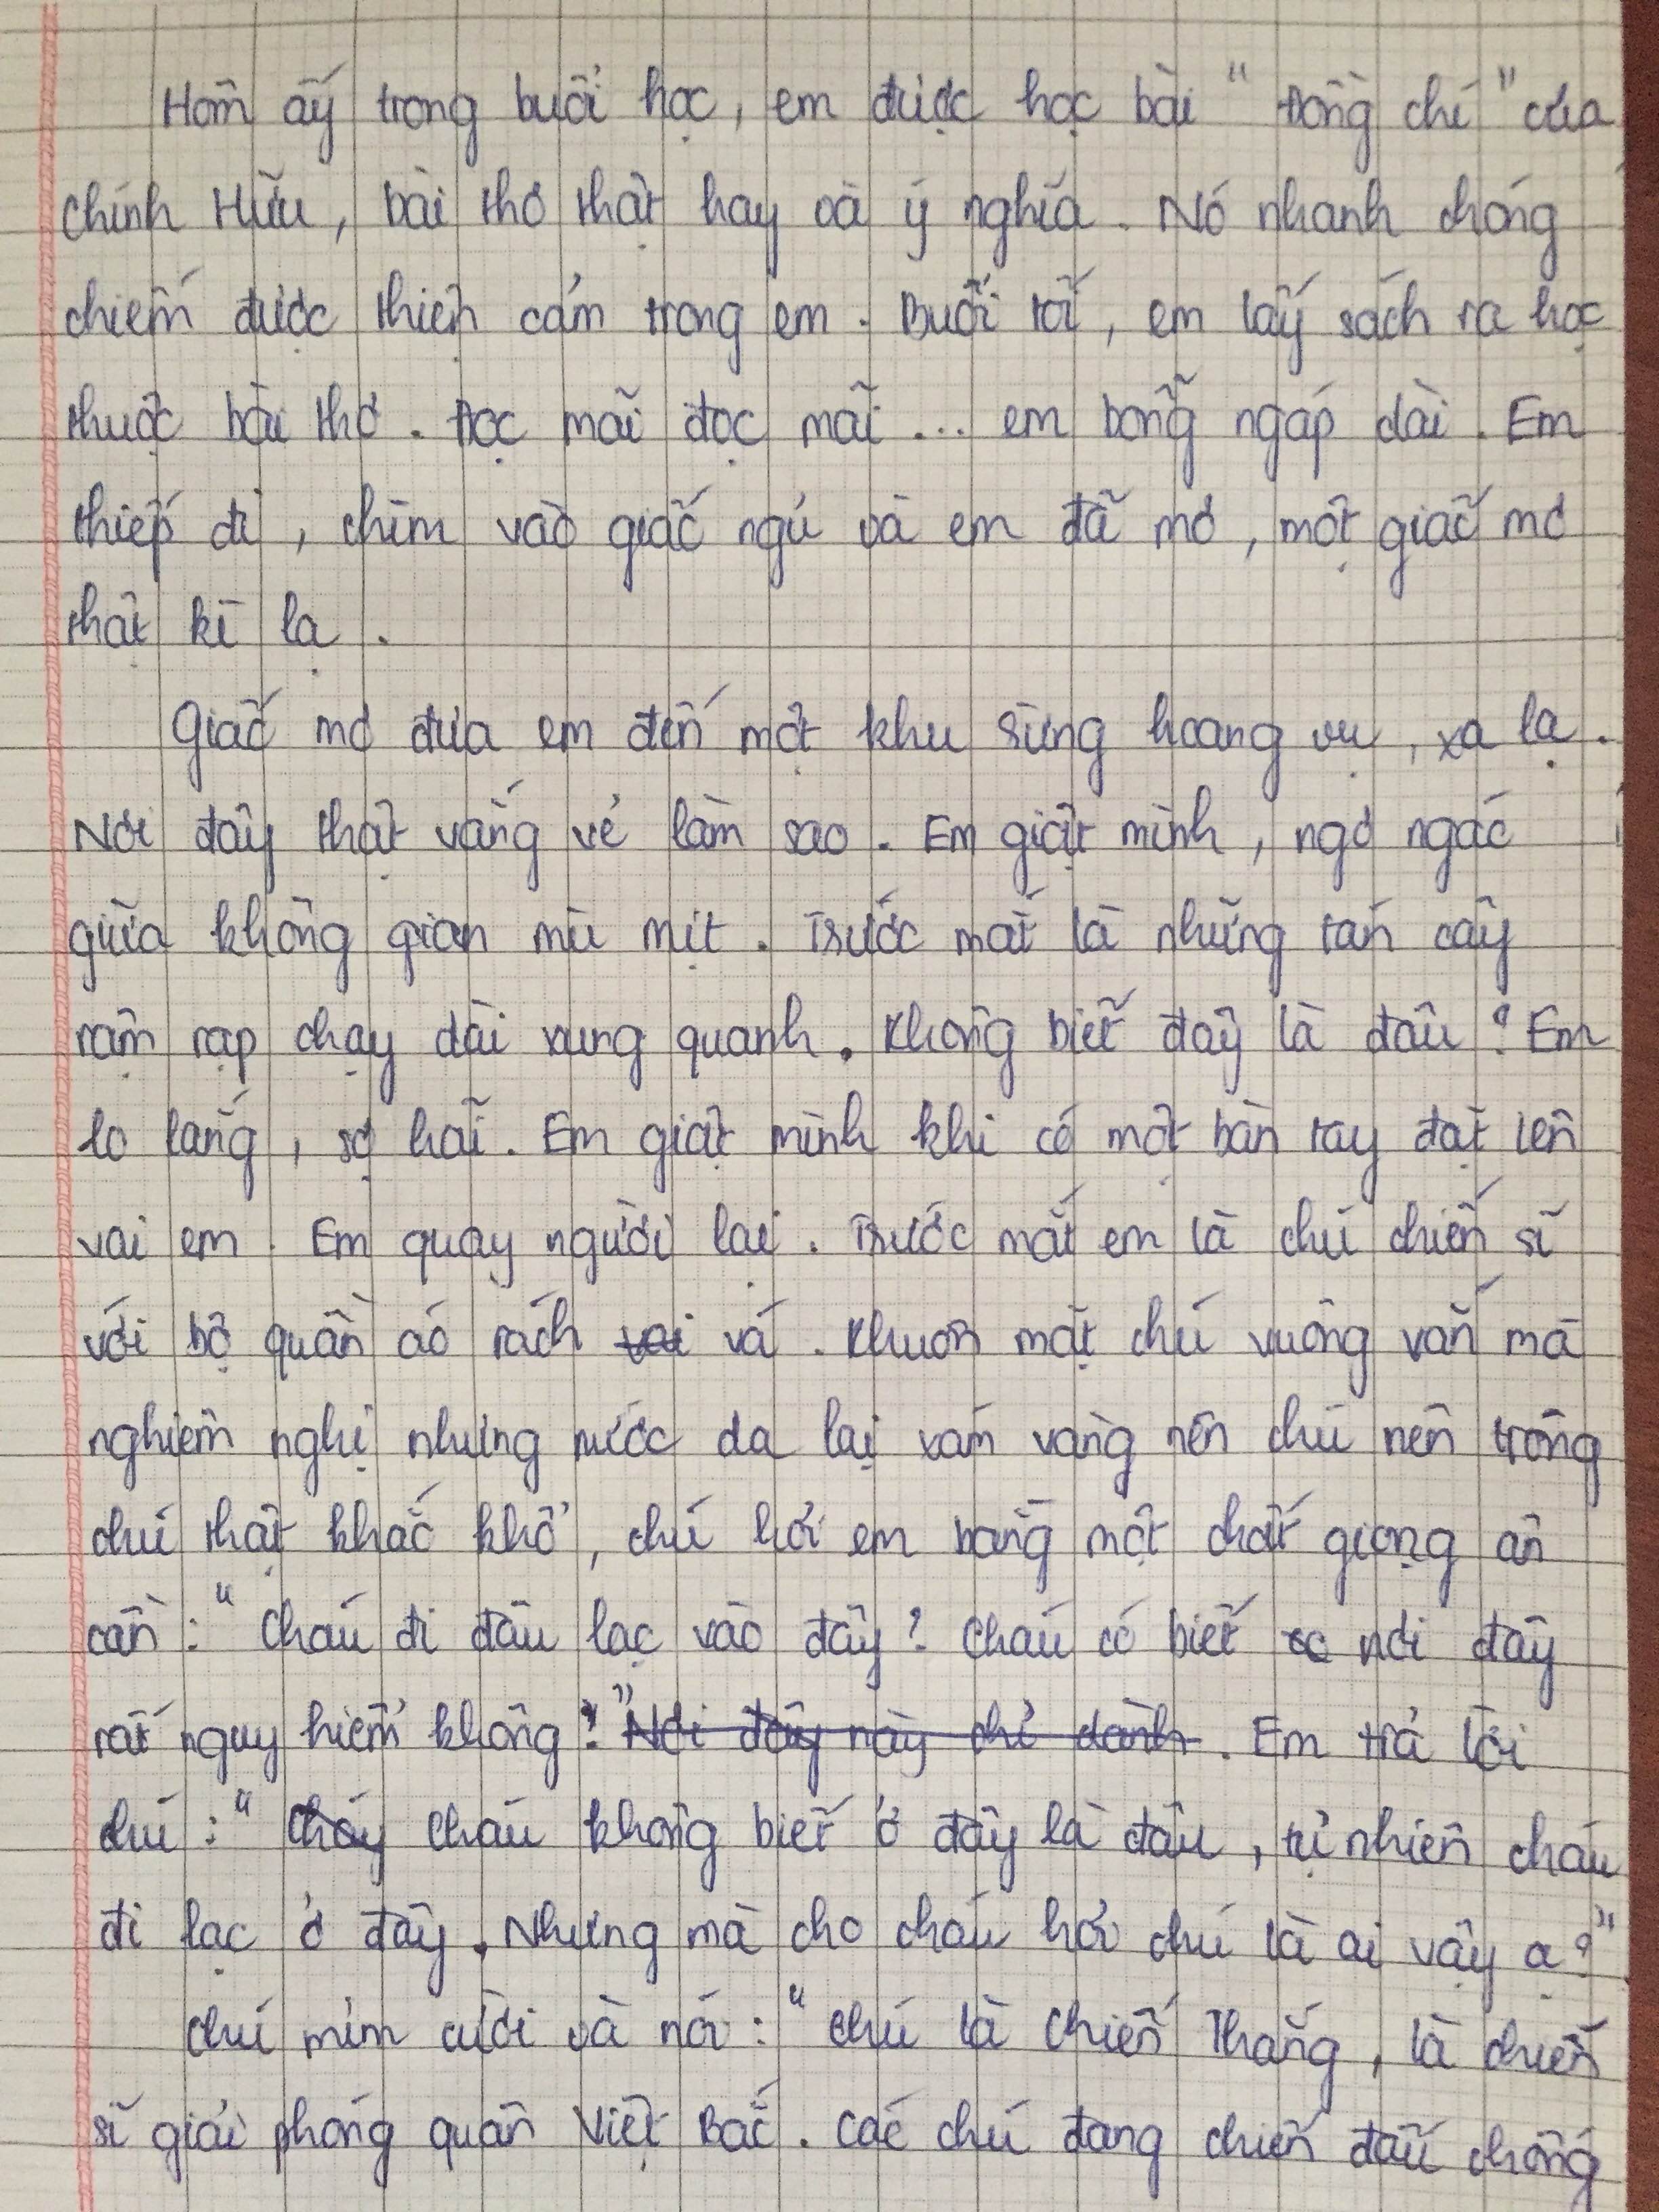 Hôm ấy trong buổi học, em được học bài "Đồng chí" của
Chính Hữu, bài thơ thật hay và ý nghĩa. Nó nhanh chóng
chiếm được thiện cảm trong em. Buổi tối, em lấy sách ra học
thuộc bài thơ. Đọc mãi đọc mãi... em bỗng ngáp dài. Em
thiếp đi, chìm vào giấc ngủ và em đã mơ, một giấc mơ
thật kì lạ.
Giấc mơ đưa em đến một khu rừng hoang vu, xa lạ.
Nơi đây thật vắng vẻ làm sao. Em giật mình, ngơ ngác
giữa không gian mù mịt. Trước mắt là những tán cây
rậm rạp chạy dài xung quanh. Không biết đây là đâu? Em
lo lắng, sợ hãi. Em giật mình khi có một bàn tay đặt lên
vai em. Em quay người lại. Trước mắt em là chú chiến sĩ
với bộ quần áo rách vá. Khuôn mặt chú vuông vắn mà
nghiêm nghị nhưng nước da lại xám vàng nên chú nên trông
chú thật khắc khổ, chú hỏi em bằng một chất giọng ân
cần: "Cháu đi đâu lạc vào đây? Cháu có biết nơi đây
rất nguy hiểm không?" Nơi đây này chỉ dành. Em trả lời
chú: "Cháu không biết ở đây là đâu, tự nhiên cháu
đi lạc ở đây. Nhưng mà cho cháu hỏi chú là ai vậy ạ?"
Chú mỉm cười và nói: "Chú là Chiến Thắng, là chiến
sĩ giải phóng quân Việt Bắc. Các chú đang chiến đấu chống